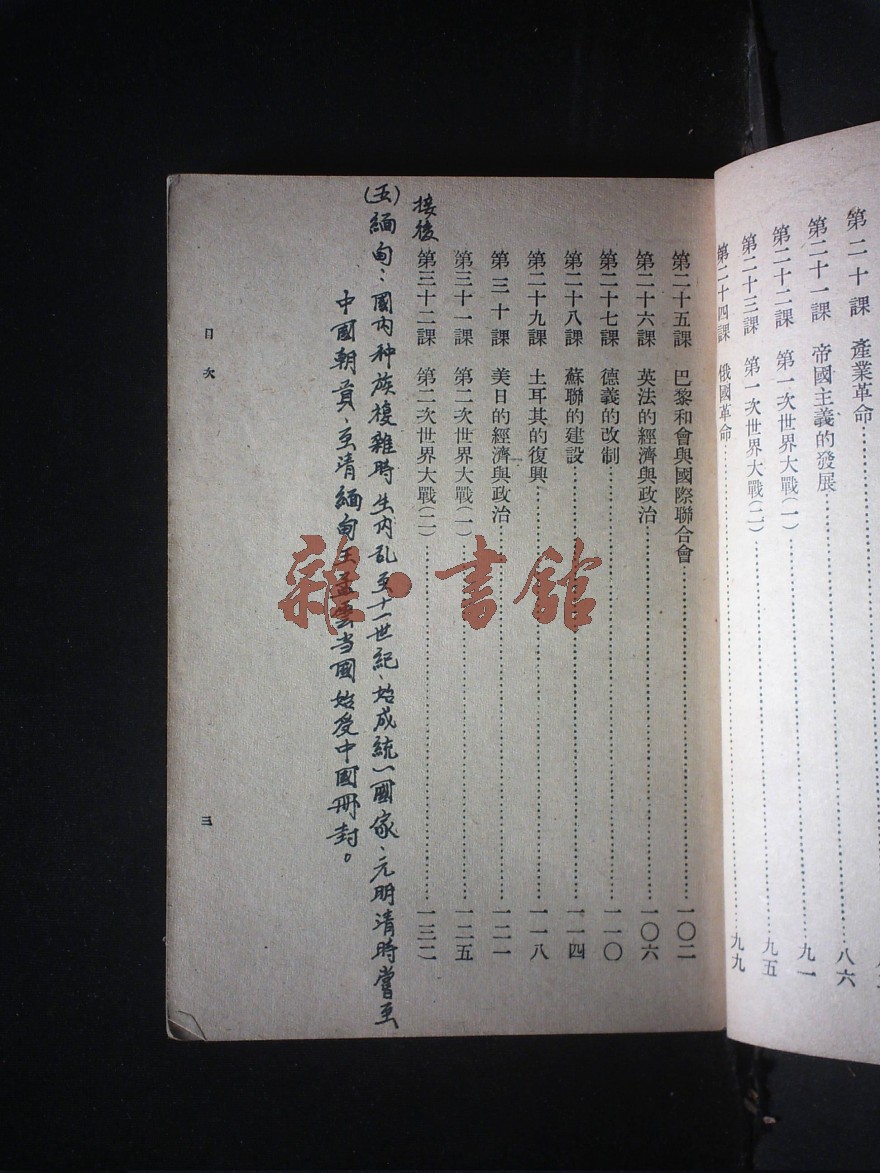 第二十課　產業革命……八六
第二十一課　帝國主義的發展……九一
第二十二課　第一次世界大戰(一)……九五
第二十三課　第一次世界大戰(二)
第二十四課　俄國革命……九九
第二十五課　巴黎和會與國際聯合會……一〇二
第二十六課　英法的經濟與政治……一〇六
第二十七課　德義的改制……一一〇
第二十八課　蘇聯的建設……一一四
第二十九課　土耳其的復興……一一八
第三十課　美日的經濟與政治……一二一
第三十一課　第二次世界大戰(一)……一二五
第三十二課　第二次世界大戰(二)……一三二
接後
(五)緬甸：國內种族複雜時生內乱至十一世紀、始成統一國家、元明清時嘗至
中國朝貢、至清緬甸王孟雲当國始受中國冊封。
目次
三
雜·書館